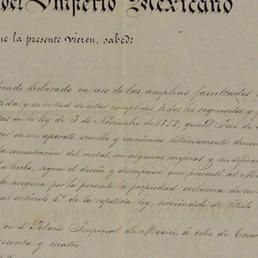 del Imperio Mexicano
que la presente vieren, sabed:
declarado en uso de las amplias facultades
y en virtud de estar cumplidos todos los requisitos y
en la ley de 3 de Noviembre de 1858, que D. José de
de un aparato sencillo y económico últimamente
la concentracion del metal, con algunas mejoras y
hecho, segun el diseño y descripcion que presentó al
le asegura por la presente la propiedad exclusiva de
al artículo 4.º de la repetida ley, sirviéndole de título
en el Palacio Imperial de Mexico, á ocho de
sesenta y cuatro.